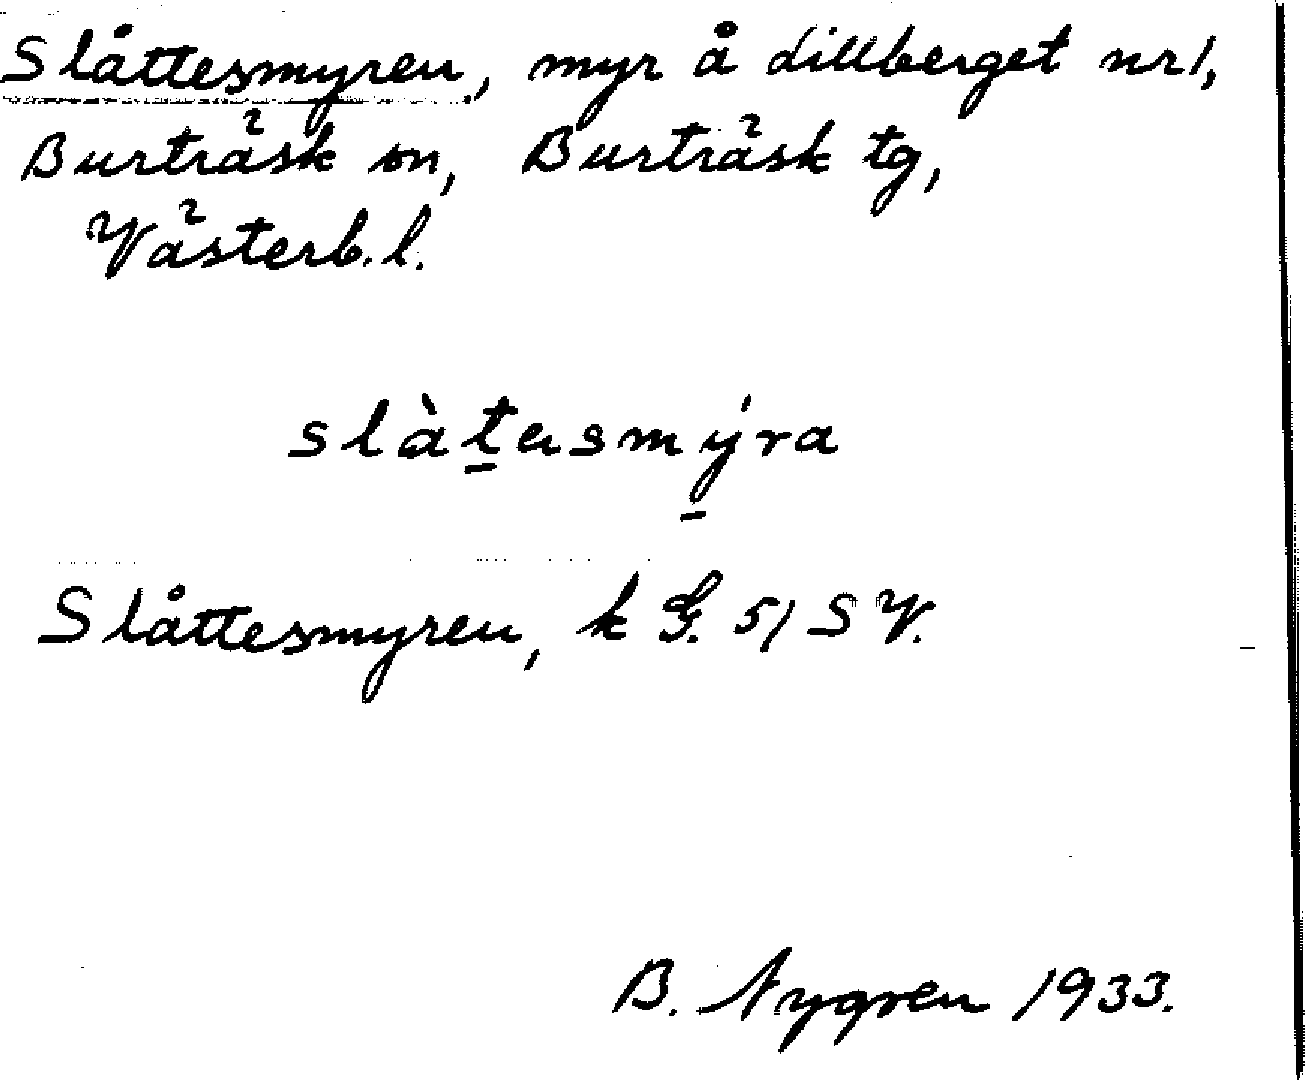 Slåttesmyren, myr å Lillberget nr 1,
Burträsk sn, Burträsk tg,
Västerb. l.
slàtasmýra
Slåttesmyren, k G. 51 SV.
B. Nygren 1933.